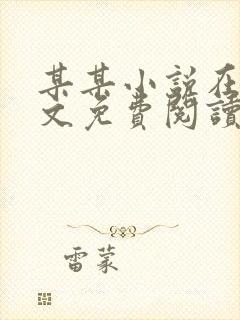 某某小說在
文免費閱讀
雷蒙